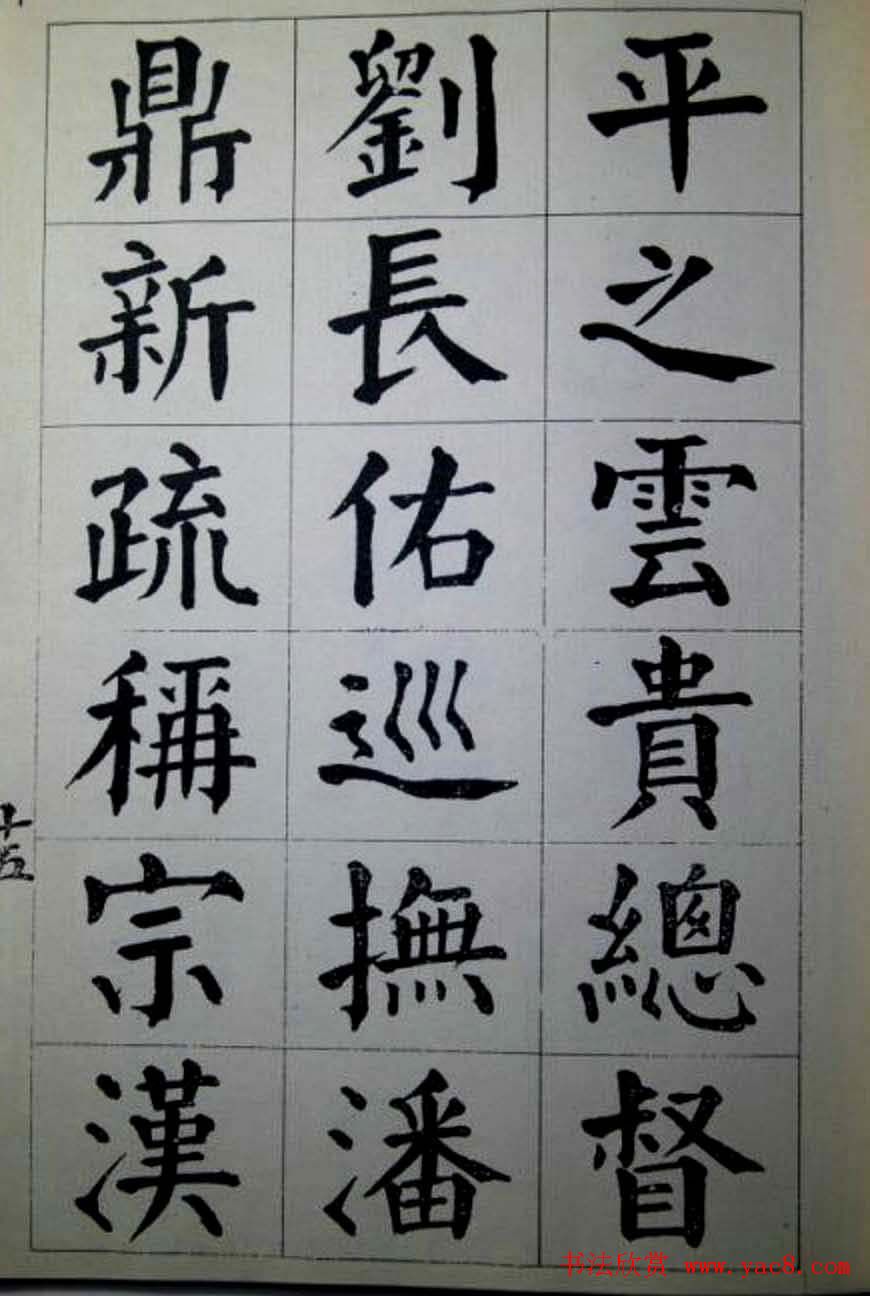 平之雲貴總督
劉長佑巡撫潘
鼎新疏稱宗漢
十五
书法欣赏 www.yac8.com